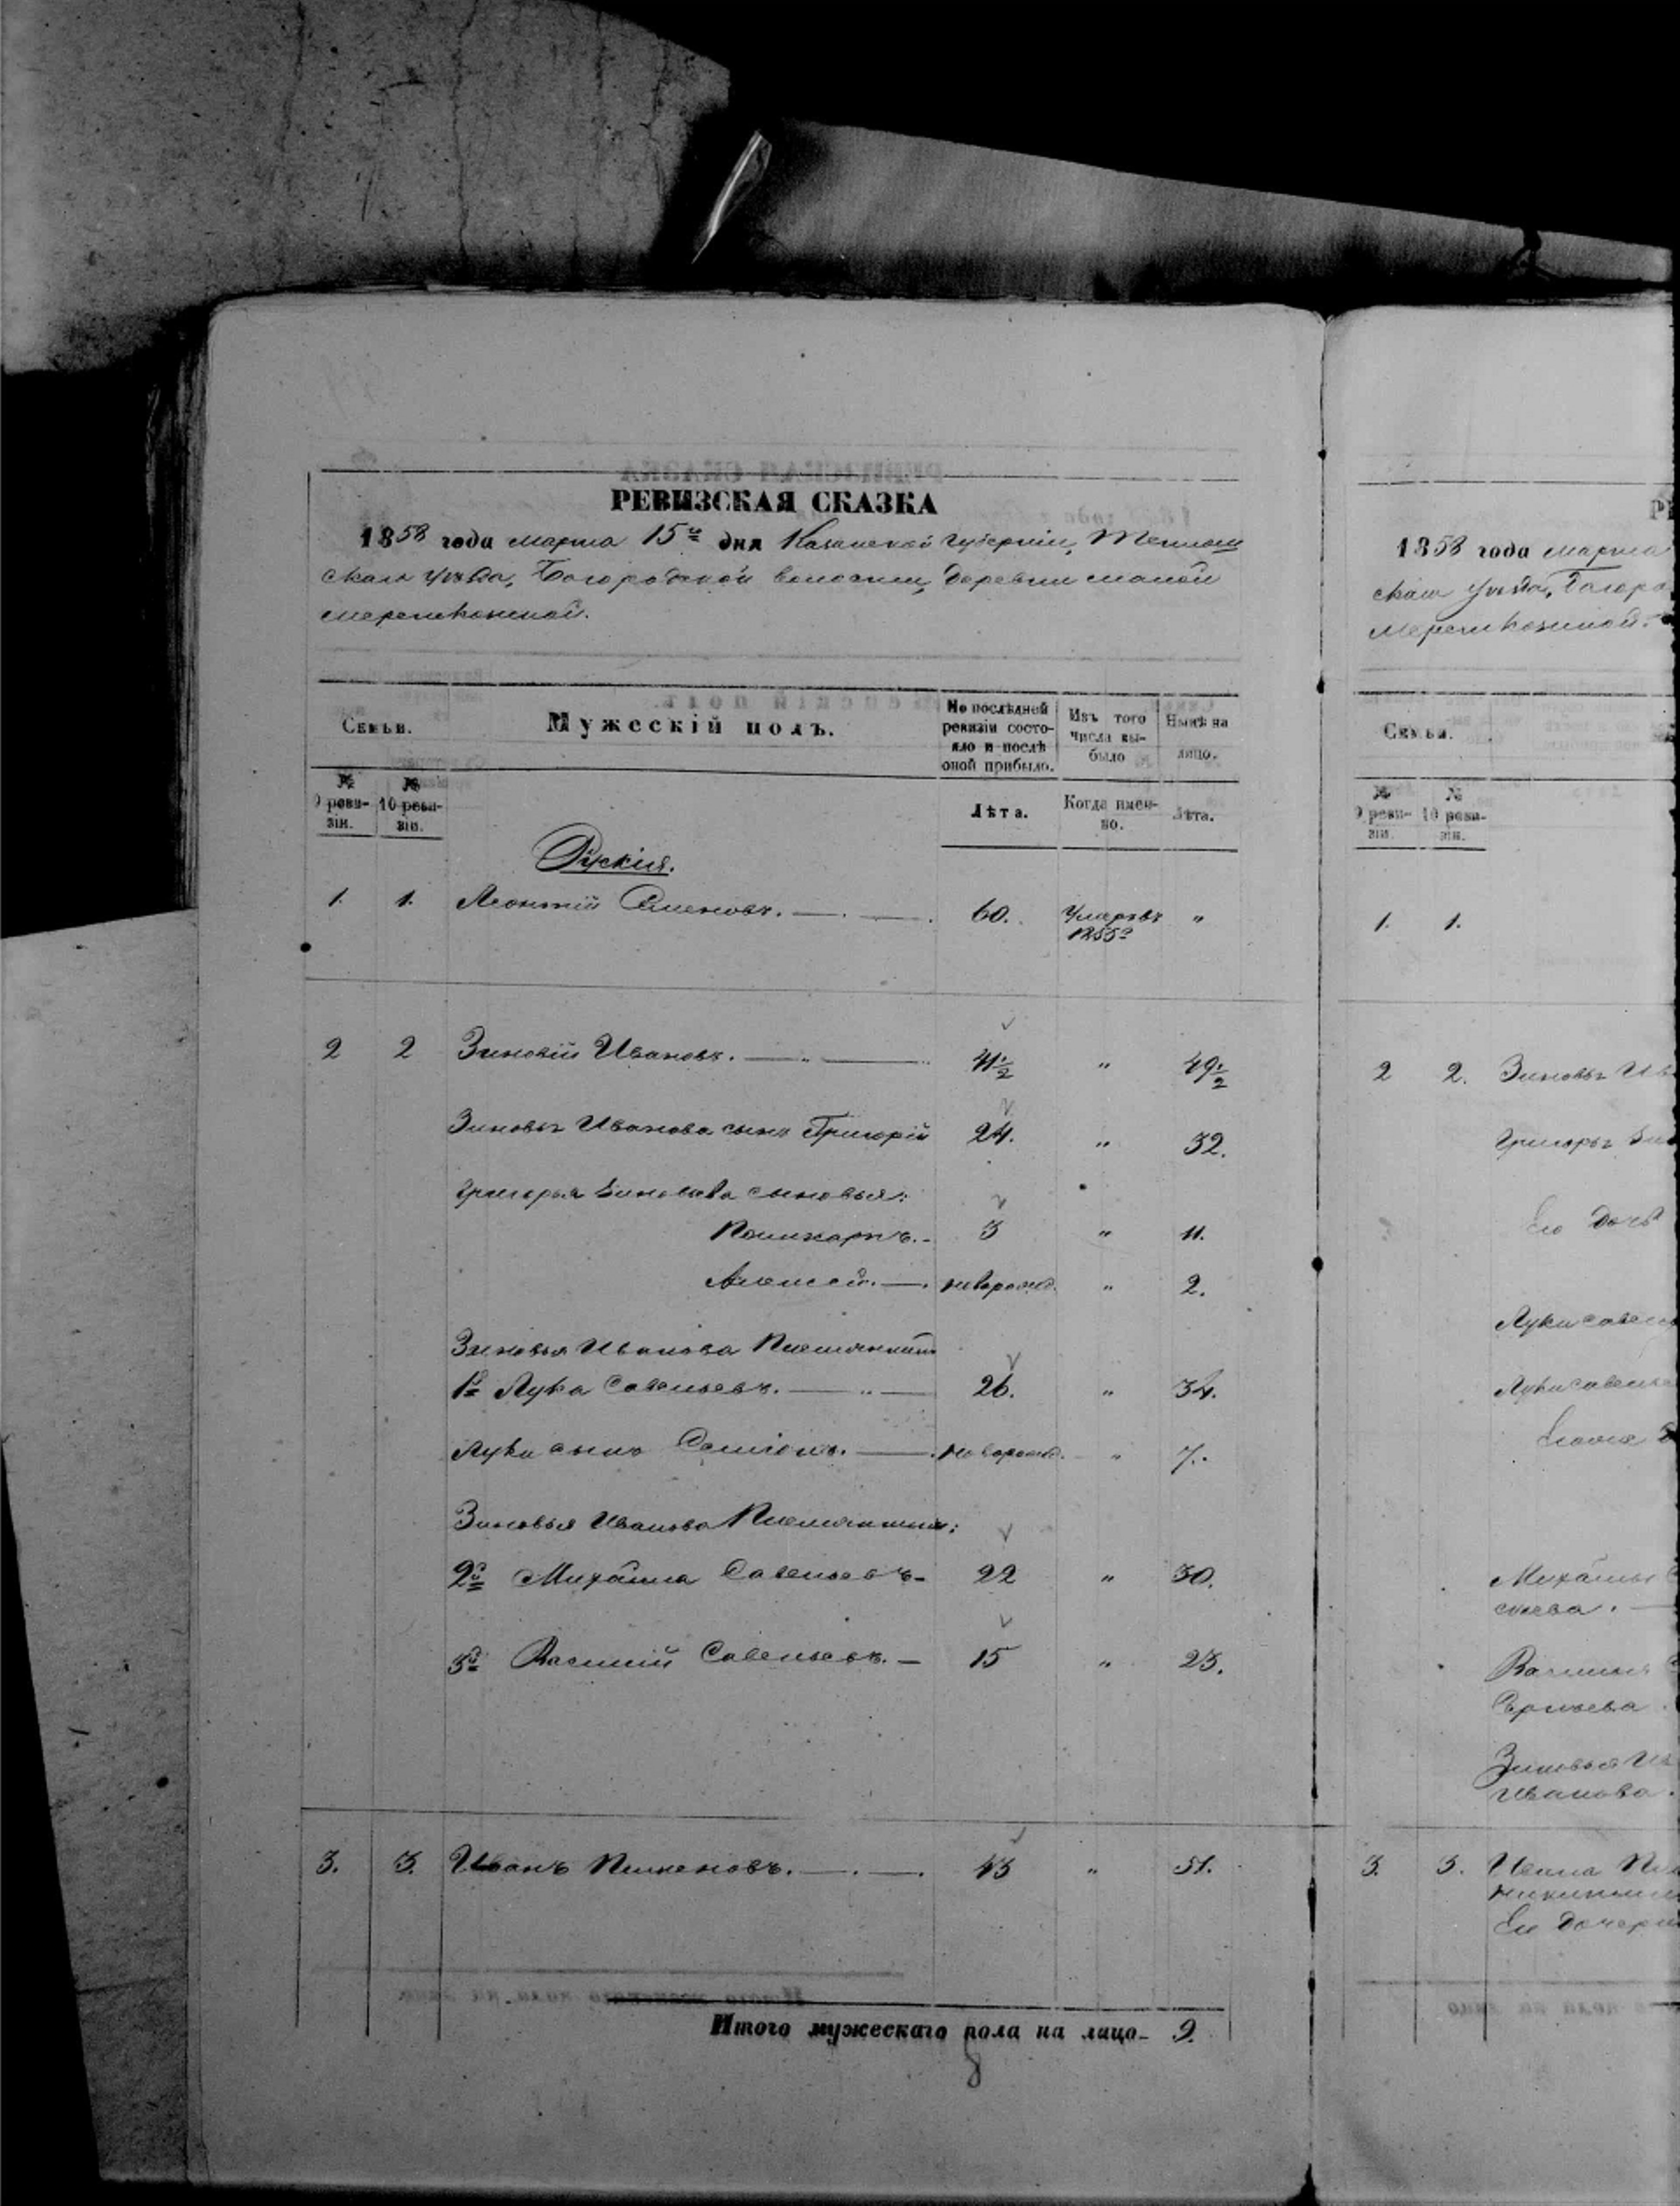 РЕВИЗСКАЯ СКАЗКА
1858 года марта 15го дня Казанской губерніи, Тетюш
скаго уѣзда, Богородской волости, деревни малой
Меретькозиной.
Семьи.
Мужескій полъ.
По послѣдней ревизіи состояло и послѣ оной прибыло.
Изъ того числа выбыло
Нынѣ на лицо.
№ 9 ревизіи.
№ 10 ревизіи.
Лѣта.
Когда именно.
Лѣта.
Рускія.
1. 1. Леонтій Семеновъ. 60. Умеръ въ 1855г "
2 2 Зиновій Ивановъ. 41½ " 49½
Зиновья Иванова сынъ Григорій 24. " 32.
Григорья Зиновьева сыновья:
Поликарпъ. 3 " 11.
Алексей. новорожд. " 2.
Зиновья Иванова племянники
1й Лука Савельевъ. 26. " 34.
Луки сынъ новорожд. " 7.
Зиновья Иванова племянники:
2й Михайла Савельевъ 22 " 30.
3й Василій Савельевъ. 15 " 23.
3. 3. Иванъ Пименовъ. 43 " 51.
Итого мужескаго пола на лицо 9.
1858 года марта
скаго уѣзда, Богоро
Меретькозиной.
Семьи.
№ 9 ревизіи.
№ 10 ревизіи.
1. 1.
2 2. Зиновья Ив
Григорья Зин
Его дочь
Луки Савель
Луки Савелье
Михайлы
Василья
Зиновья Ив
Иванова.
3. 3. Ивана Пи
Ея дочери